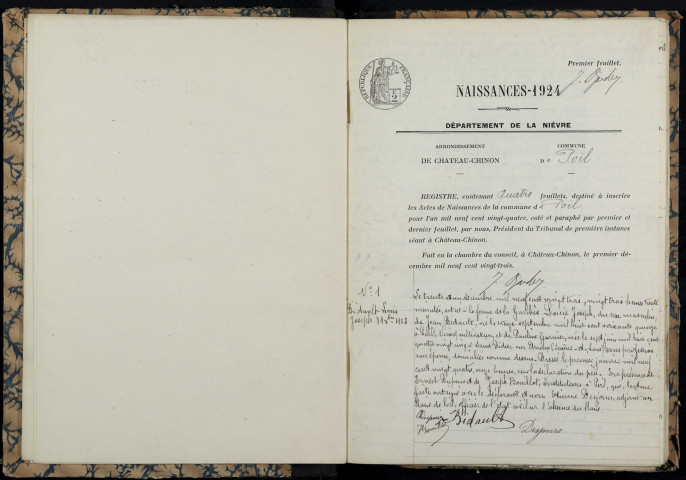 Premier feuillet.
RÉPUBLIQUE FRANÇAISE
NAISSANCES-1924
DÉPARTEMENT DE LA NIÈVRE
ARRONDISSEMENT
DE CHATEAU-CHINON
COMMUNE
De Poil
REGISTRE, contenant Quatre feuillets, destiné à inscrire
les Actes de Naissances de la commune de Poil
pour l'an mil neuf cent vingt-quatre, coté et paraphé par premier et
dernier feuillet, par nous, Président du Tribunal de première instance
séant à Château-Chinon.
Fait en la chambre du conseil, à Château-Chinon, le premier dé-
cembre mil neuf cent vingt-trois.
N° 1
Bidault Louis
Joseph 31 Xbre 1923
Le trente et un décembre mil neuf cent vingt trois, vingt trois heures trente
minutes, est né à la ferme de Louis Joseph, du sexe masculin,
de Jean Bidault, né le septembre mil huit cent soixante quinze
à cultivateur, et de Pauline Garnier, née le sept juin mil huit cent
quatre vingt à Saint Didier sans profession
son épouse, domiciliés comme dessus. Dressé le premier janvier mil neuf
cent vingt quatre, onze heures, sur la déclaration du père. En présence de
Ernest et de Joseph Instituteurs à Poil, qui, lecture
faite ont signé avec le déclarant et avons Etienne adjoint au
Maire de Poil, officier de l'état civil en l'absence du Maire
Bidault